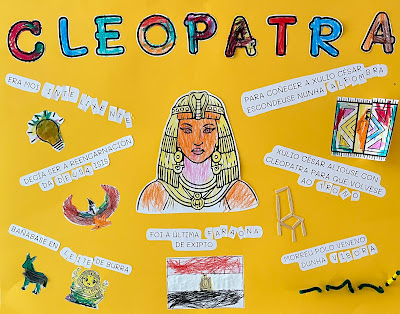 CLEOPATRA
ERA MOI INTELIXENTE
PARA COÑECER A XULIO CÉSAR
ESCONDEUSE NUNHA ALFOMBRA
DECÍA SER A REENCARNACIÓN
DA DEUSA ISIS
XULIO CÉSAR ALIOUSE CON
CLEOPATRA PARA QUE VOLVESE
AO TRONO
BAÑÁBASE EN LEITE DE BURRA
FOI A ÚLTIMA FARAONA
DE EXIPTO
MORREU POLO VENENO
DUNHA VÍBORA